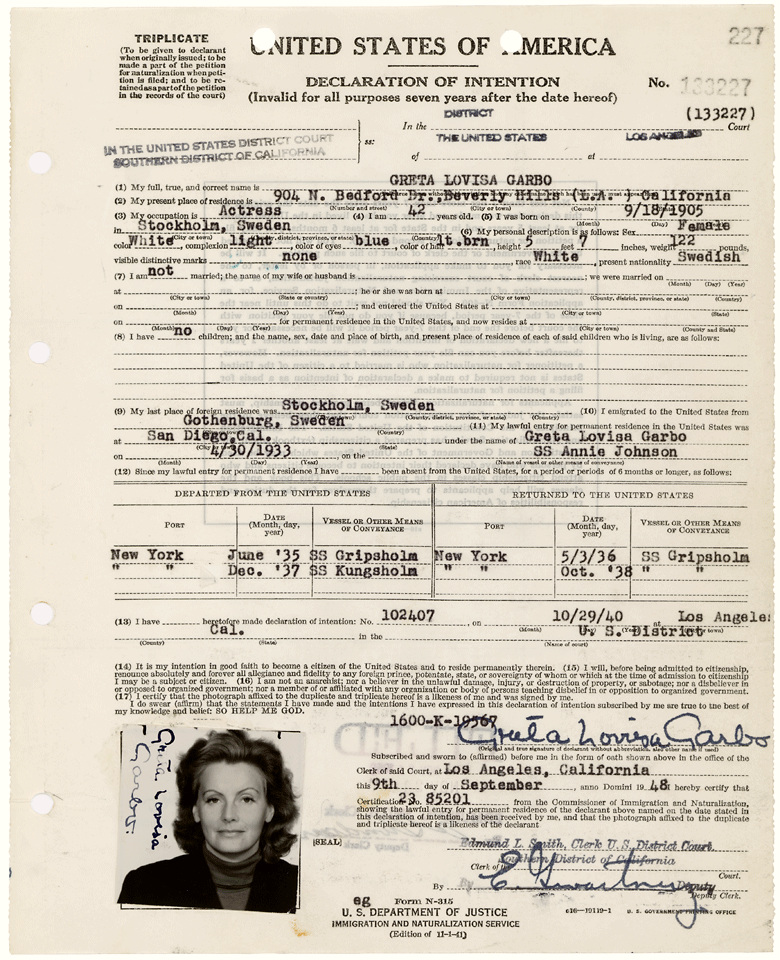 227
TRIPLICATE
(To be given to declarant
when originally issued; to be
made a part of the petition
for naturalization when peti-
tion is filed; and to be re-
tained as a part of the petition
in the records of the court)
UNITED STATES OF AMERICA
DECLARATION OF INTENTION
(Invalid for all purposes seven years after the date hereof)
No. 133227
(133227)
IN THE UNITED STATES DISTRICT COURT
SOUTHERN DISTRICT OF CALIFORNIA
ss:
In the DISTRICT Court
of THE UNITED STATES at LOS ANGELES
(1) My full, true, and correct name is GRETA LOVISA GARBO
(2) My present place of residence is 904 N. Bedford Dr., Beverly Hills (L.A.) California
(Number and street) (City or town) (County) (State)
(3) My occupation is Actress (4) I am 42 years old. (5) I was born on 9/18/1905
(Month) (Day) (Year)
in Stockholm, Sweden (6) My personal description is as follows: Sex Female
(City or town) (County, district, province, or state) (Country)
color White, complexion light, color of eyes blue, color of hair lt.brn, height 5 feet 7 inches, weight 122 pounds,
visible distinctive marks none race White, present nationality Swedish
(7) I am not married; the name of my wife or husband is ; we were married on
(Month) (Day) (Year)
at ; he or she was born at
(City or town) (State or country) (City or town) (County, district, province, or state) (Country)
on ; and entered the United States at
(Month) (Day) (Year) (City or town) (State)
on for permanent residence in the United States, and now resides at
(Month) (Day) (Year) (City or town) (County and State)
(8) I have no children; and the name, sex, date and place of birth, and present place of residence of each of said children who is living, are as follows:
(9) My last place of foreign residence was Stockholm, Sweden (10) I emigrated to the United States from
(City or town) (County, district, province, or state) (Country)
Gothenburg, Sweden (11) My lawful entry for permanent residence in the United States was
(Country)
at San Diego, Cal. under the name of Greta Lovisa Garbo
(City or town) (State)
on 4/30/1933 on the SS Annie Johnson
(Month) (Day) (Year) (Name of vessel or other means of conveyance)
(12) Since my lawful entry for permanent residence I have been absent from the United States, for a period or periods of 6 months or longer, as follows:
DEPARTED FROM THE UNITED STATES RETURNED TO THE UNITED STATES
PORT DATE (Month, day, year) VESSEL OR OTHER MEANS OF CONVEYANCE PORT DATE (Month, day, year) VESSEL OR OTHER MEANS OF CONVEYANCE
New York June '35 SS Gripsholm New York 5/3/36 SS Gripsholm
" " Dec. '37 SS Kungsholm " " Oct. '38 " "
(13) I have heretofore made declaration of intention: No. 102407, on 10/29/40 at Los Angeles
(Month) (Day) (Year) (City or town)
Cal. in the U. S. District
(County) (State) (Name of court)
(14) It is my intention in good faith to become a citizen of the United States and to reside permanently therein. (15) I will, before being admitted to citizenship,
renounce absolutely and forever all allegiance and fidelity to any foreign prince, potentate, state, or sovereignty of whom or which at the time of admission to citizenship
I may be a subject or citizen. (16) I am not an anarchist; nor a believer in the unlawful damage, injury, or destruction of property, or sabotage; nor a disbeliever in
or opposed to organized government; nor a member of or affiliated with any organization or body of persons teaching disbelief in or opposition to organized government.
(17) I certify that the photograph affixed to the duplicate and triplicate hereof is a likeness of me and was signed by me.
I do swear (affirm) that the statements I have made and the intentions I have expressed in this declaration of intention subscribed by me are true to the best of
my knowledge and belief: SO HELP ME GOD.
1600-K-19567
Greta Lovisa Garbo
(Original and true signature of declarant without abbreviation, also other name if used)
Subscribed and sworn to (affirmed) before me in the form of oath shown above in the office of the
Clerk of said Court, at Los Angeles, California
this 9th day of September, anno Domini 1948 I hereby certify that
Certification No. 23 85201 from the Commissioner of Immigration and Naturalization,
showing the lawful entry for permanent residence of the declarant above named on the date stated in
this declaration of intention, has been received by me, and that the photograph affixed to the duplicate
and triplicate hereof is a likeness of the declarant
Greta Lovisa
Garbo.
[SEAL]
Edmund L. Smith, Clerk U.S. District Court.
Southern District of California
Clerk of the Court.
By Deputy
Deputy Clerk.
eg Form N-315
U. S. DEPARTMENT OF JUSTICE
IMMIGRATION AND NATURALIZATION SERVICE
(Edition of 11-1-41)
c16—19119-1 U. S. GOVERNMENT PRINTING OFFICE